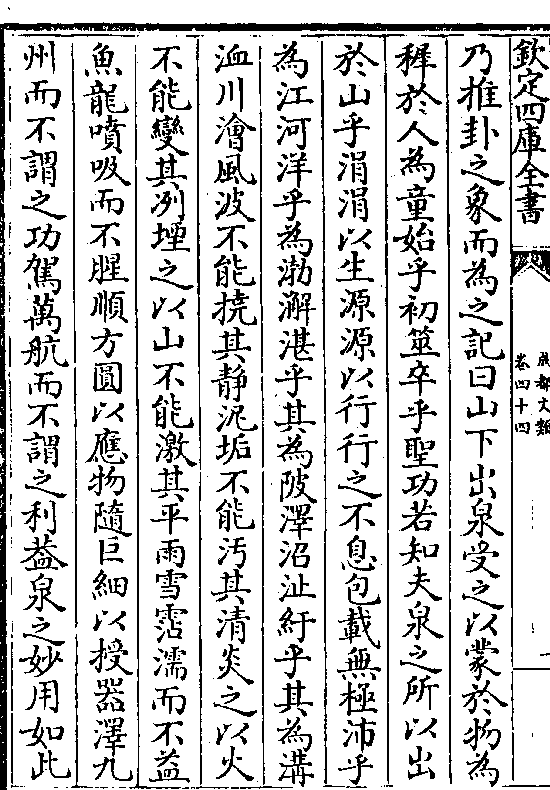 欽定四庫全書
成都文類
卷四十四
乃推卦之象而為之記曰山下出泉受之以蒙於物為
稺於人為童始乎初筮卒乎聖功若知夫泉之所以出
於山乎涓涓以生源源以行行之不息包載無極沛乎
為江河洋乎為渤澥湛乎其為陂澤沼沚紆乎其為溝
洫川澮風波不能撓其静泥垢不能汚其清炎之以火
不能變其冽堙之以山不能激其平雨雪霑濡而不益
魚龍噴吸而不腥順方圓以應物隨巨細以授器澤九
州而不謂之功駕萬航而不謂之利葢泉之妙用如此